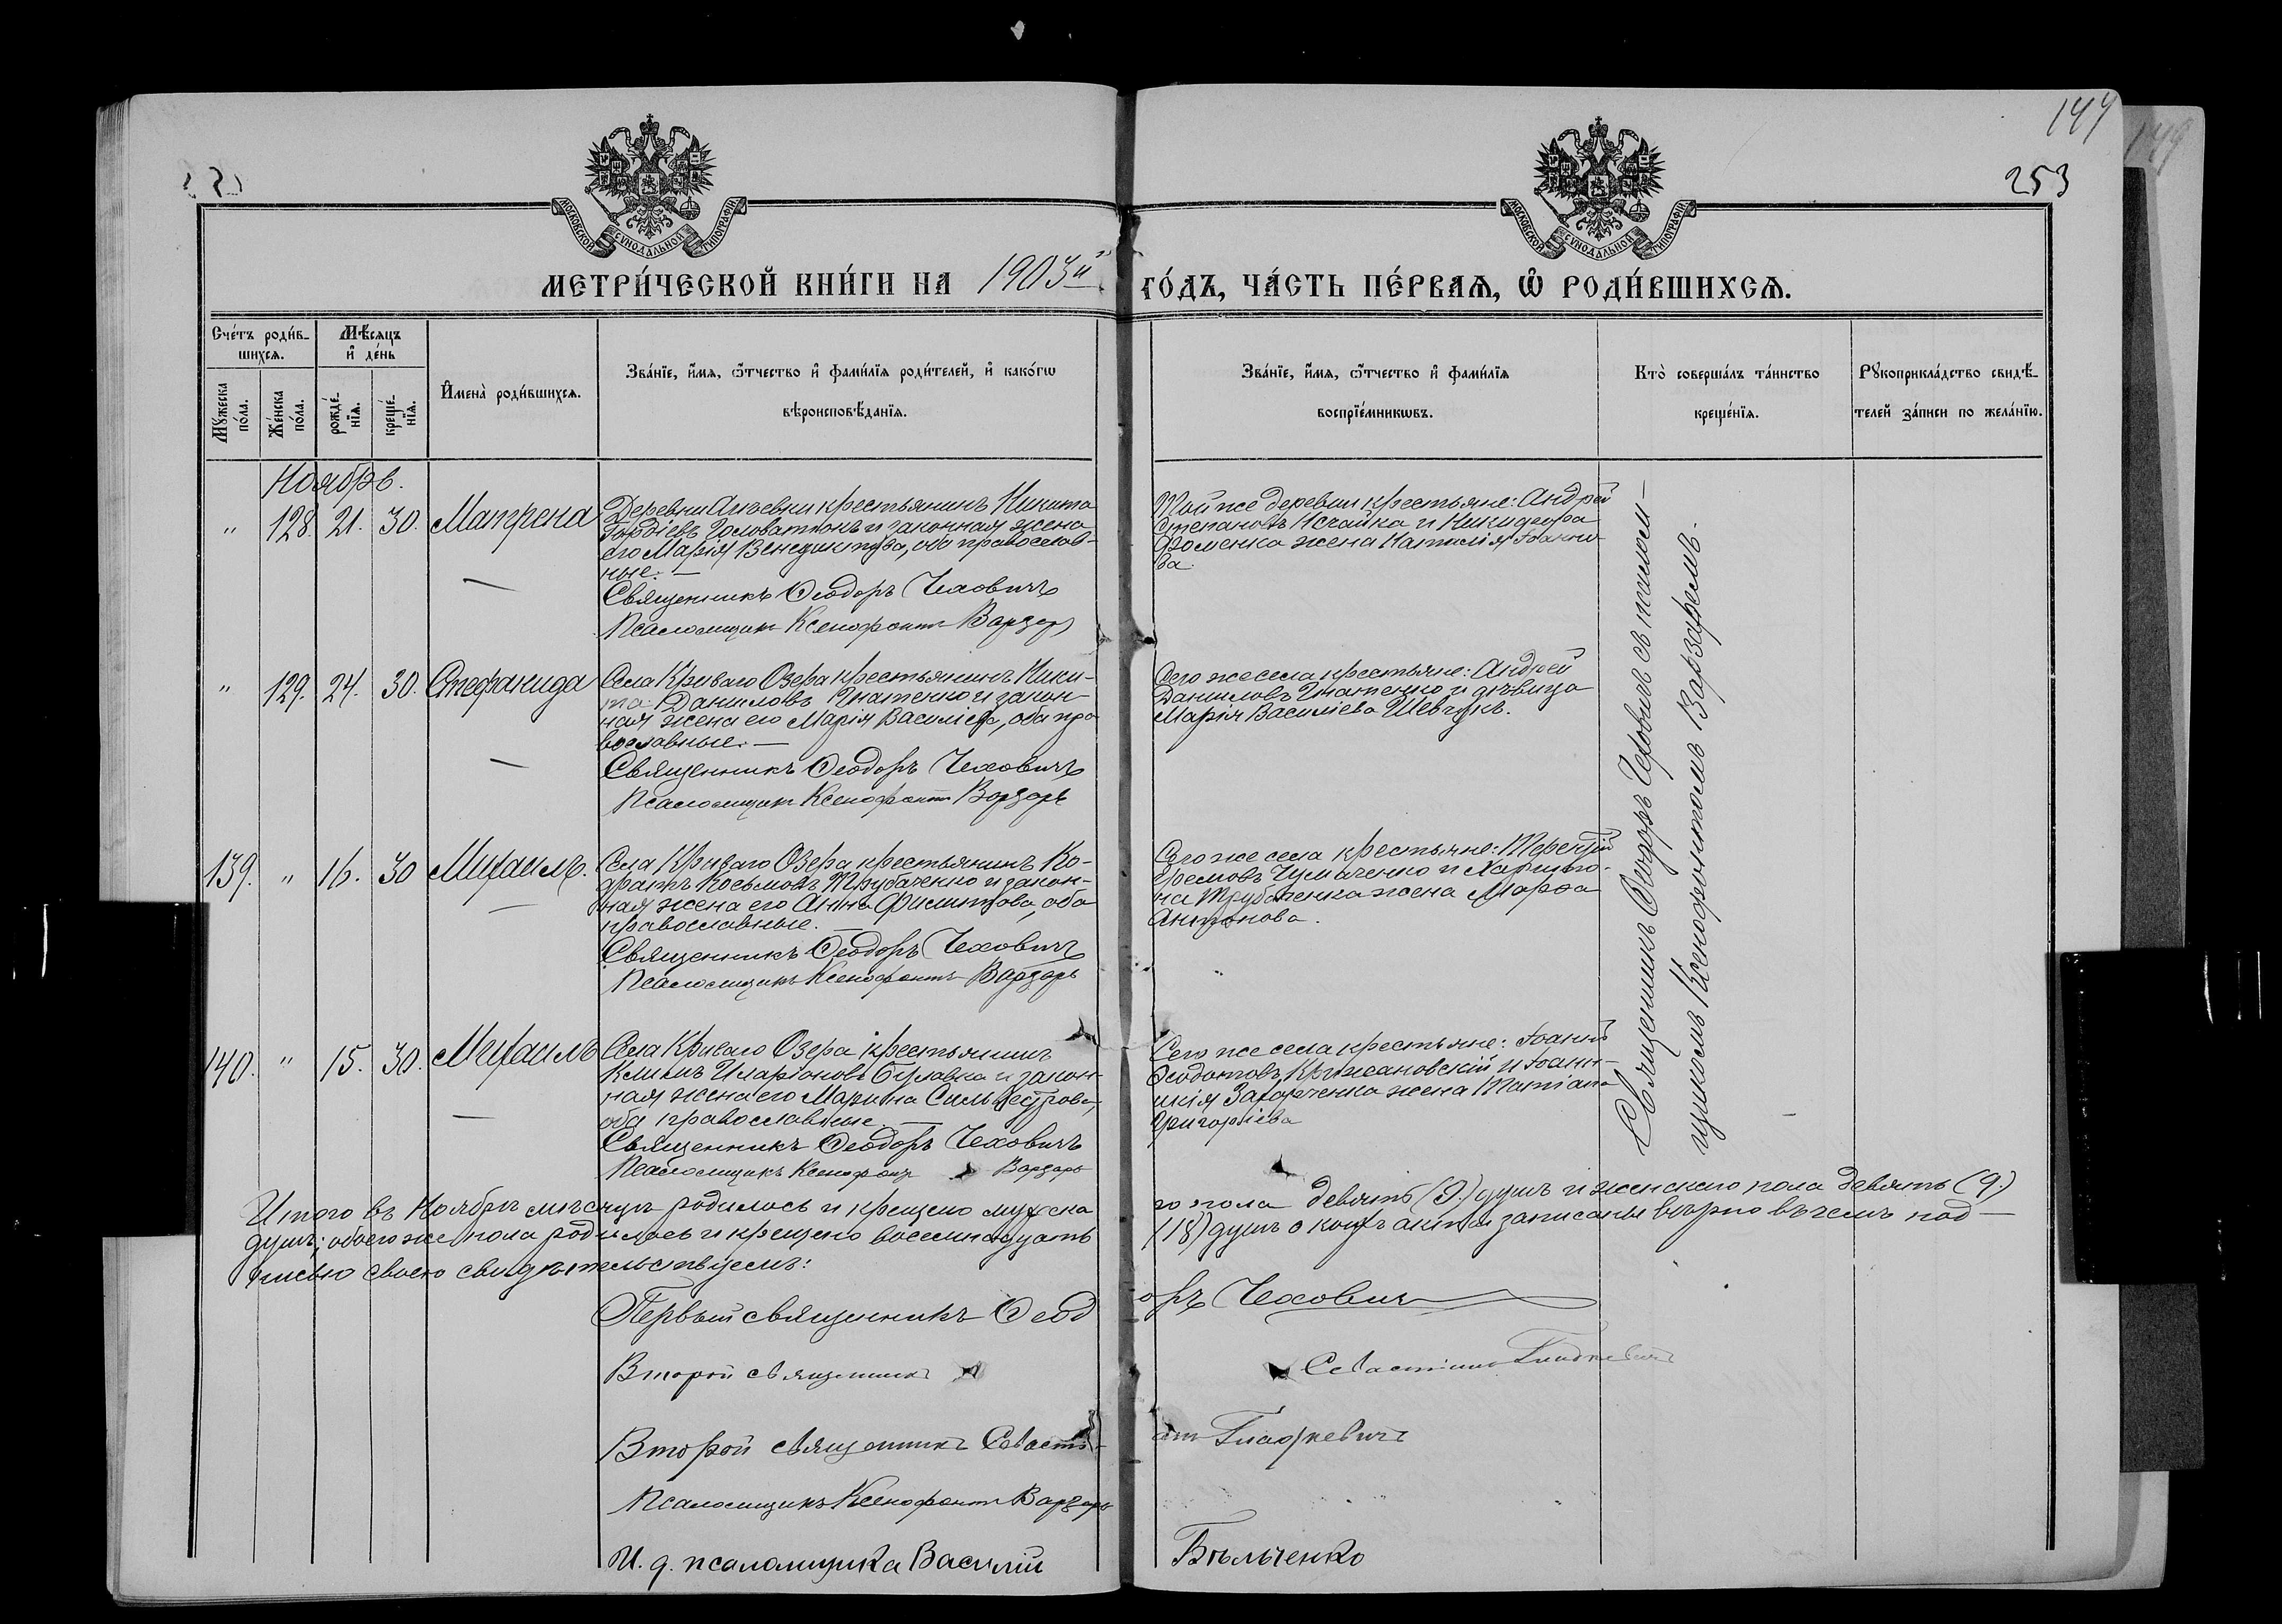 144
149
253
МОСКОВСКОЙ СУНОДАЛЬНОЙ ТИПОГРАФІИ
МОСКОВСКОЙ СУНОДАЛЬНОЙ ТИПОГРАФІИ
МЕТРИ́ЧЕСКОЙ КНИ́ГИ НА 1903й ГО́ДЪ, ЧА́СТЬ ПЕ́РВАѦ, Ѡ҆ РОДИ́ВШИХСѦ.
Сче́тъ роди́в-
шихсѧ.
Мѣ́сѧцъ
и҆ де́нь
Мꙋ́жеска
по́ла.
Же́нска
по́ла.
рожде́-
нїѧ.
креще́-
нїѧ.
И҆мена̀ роди́вшихсѧ.
Зва́нїе, и҆́мѧ, ѻ҆́тчество и҆ фами́лїѧ роди́телей, и҆ како́гѡ
вѣроисповѣ́данїѧ.
Зва́нїе, и҆́мѧ, ѻ҆́тчество и҆ фами́лїѧ
воспрїе́мникѡвъ.
Кто̀ соверша́лъ та́инство
креще́нїѧ.
Рꙋкоприкла́дство свидѣ́-
телей за́писи по жела́нїю.
Ноябрь.
" 128. 21. 30. Матрена
Деревни Анъевки крестьянинъ Никита
Гордіевъ Головатюкъ и законная жена
его Марія Венедиктова, оба православ-
ные. —
Священникъ Ѳеодоръ Чеховичъ
Псаломщикъ Ксенофонтъ Варзарь
Той же деревни крестьяне: Андрей
Степановъ Нечайка и Никифора
жена Наталія Іоанно-
ва.
" 129. 24. 30. Стефанида
Села Криваго Озера крестьянинъ Ники-
та Даниловъ Игнатенко и закон-
ная жена его Марія Василіева, оба пра
вославные. —
Священникъ Ѳеодоръ Чеховичъ
Псаломщикъ Ксенофонтъ Варзарь
Сего же села крестьяне: Андрей
Даниловъ Игнатенко и дѣвица
Марія Василіева Шевчукъ.
139. " 16. 30 Михаилъ.
Села Криваго Озера крестьянинъ Ко-
дратъ Косьмовъ Трубаченко и закон-
ная жена его Анна Филиппова, оба
православные. —
Священникъ Ѳеодоръ Чеховичъ
Псаломщикъ Ксенофонтъ Варзарь
Сего же села крестьяне: Терентій
Ефремовъ Чумаченко и Харито-
на Трубаченка жена Марѳа
Антонова.
140. " 15. 30. Михаилъ
Села Криваго Озера крестьянинъ
Климъ Иларіоновъ Булавка и закон-
ная жена его Марина Сильвестрова,
оба православные —
Священникъ Ѳеодоръ Чеховичъ
Псаломщикъ Ксенофонтъ Варзарь
Сего же села крестьяне: Іоаннъ
Ѳеодотовъ Крижановскій и Іоан-
никія Захарченка жена Татіана
Григоріева
Священникъ Ѳеодоръ Чеховичъ съ псалом-
щикомъ Ксенофонтомъ Варзаремъ.
Итого въ Ноябрѣ мѣсяцѣ родилось и крещено мужска го пола девять (9.) душъ и женскаго пола девять (9.)
душъ; обоего же пола родилось и крещено восемнадцать (18) душъ о коихъ акты записаны вѣрно въ чемъ под-
писью своею свидѣтельствуемъ:
Первый священникъ Ѳеодоръ Чеховичъ
Второй священникъ Севастіанъ
Второй священникъ Севастіанъ Гладкевичъ
Псаломщикъ Ксенофонтъ Варзарь
И. д. псаломщика Василій Бѣльченко